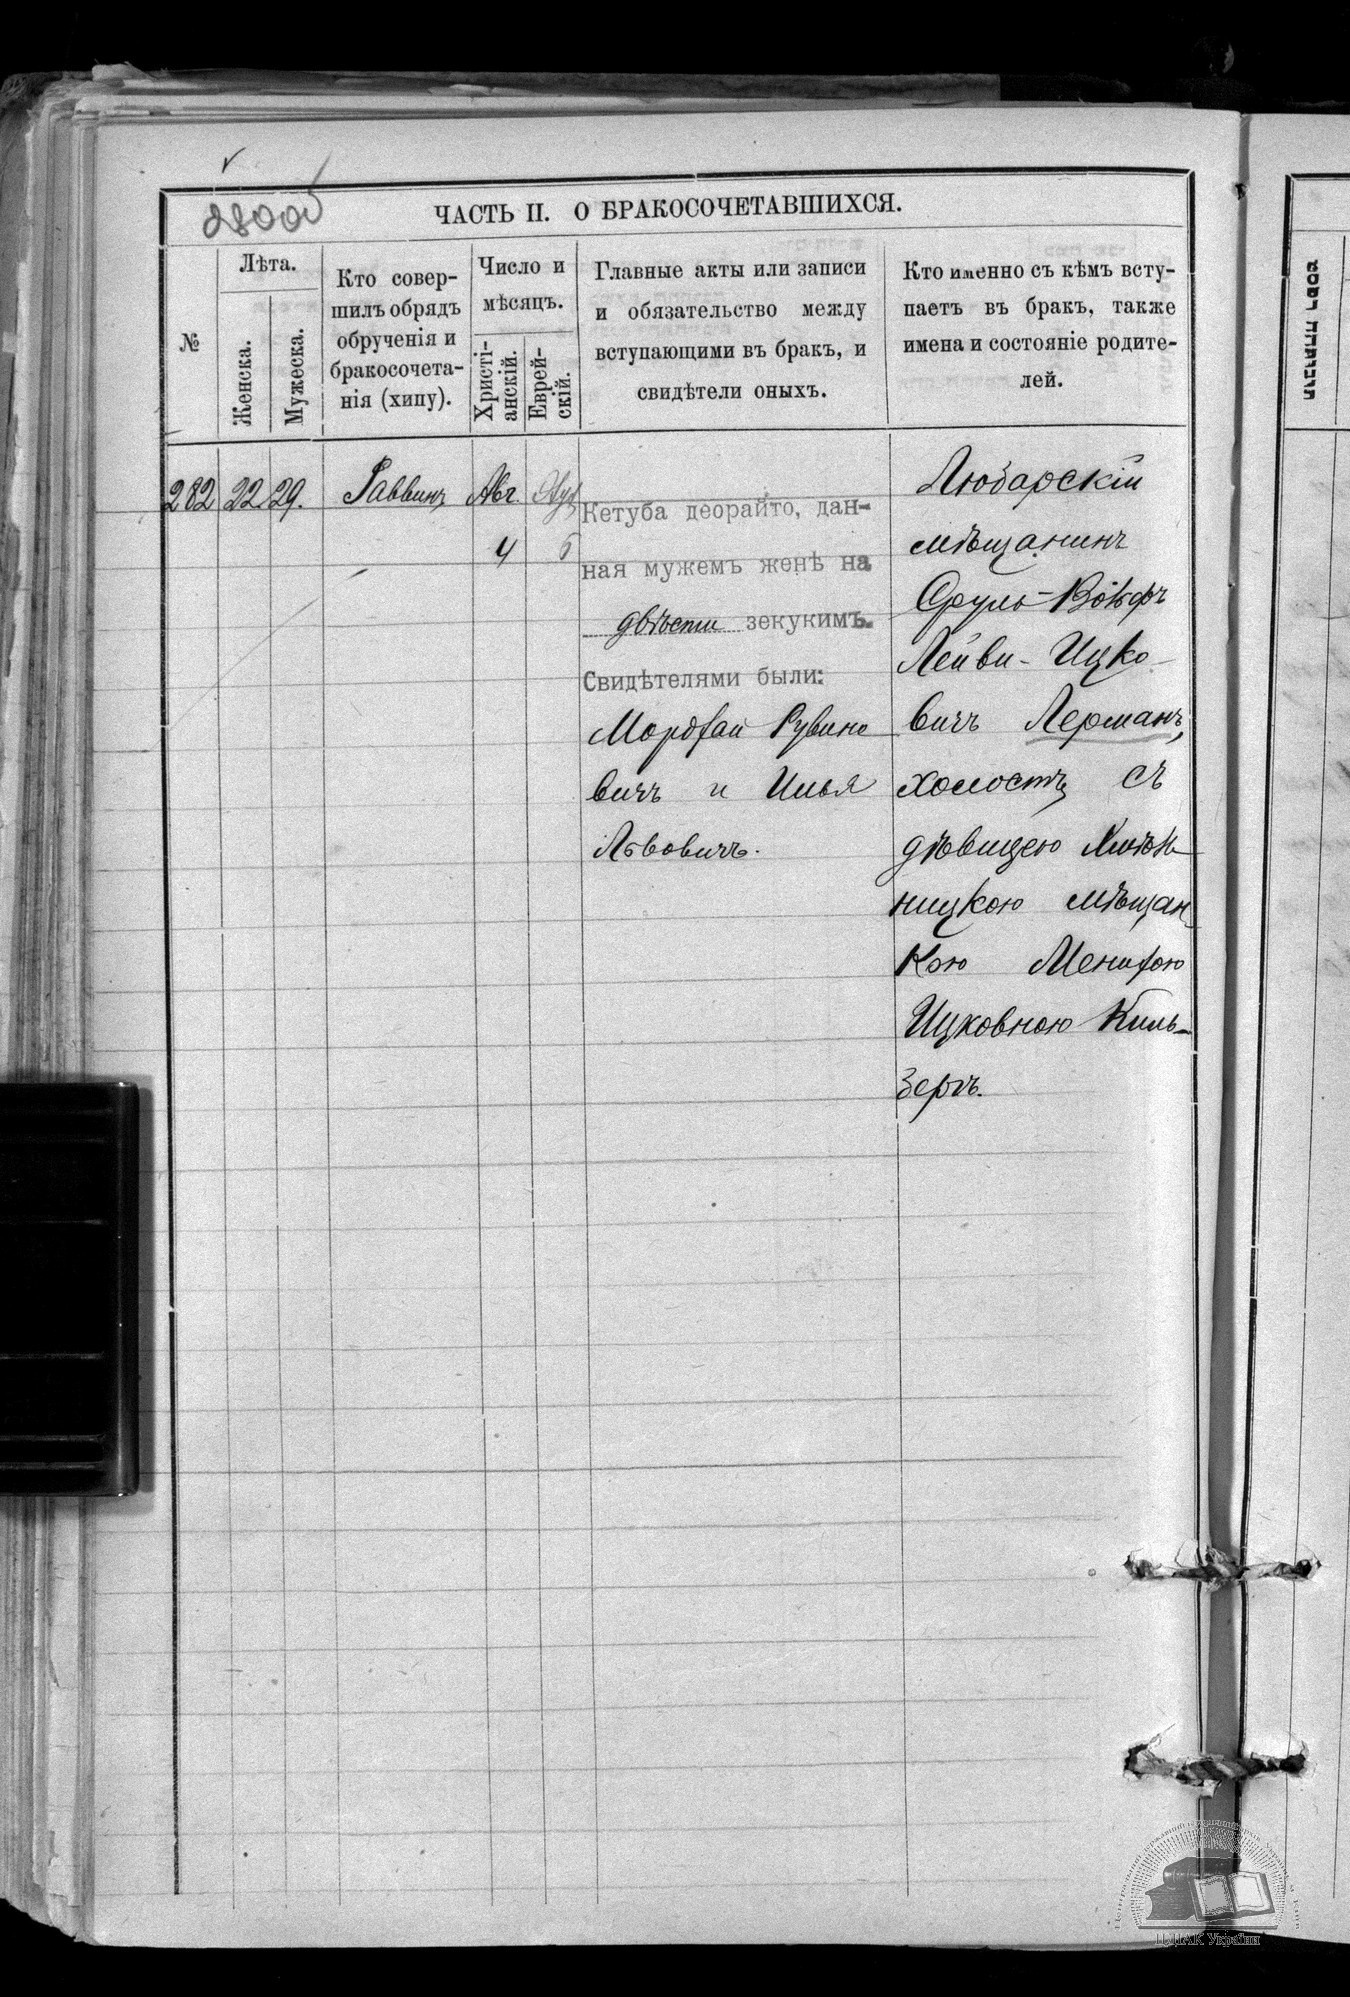 ЧАСТЬ II. О БРАКОСОЧЕТАВШИХСЯ.
№
Лѣта.
Женска.
Мужеска.
Кто совер-
шилъ обрядъ
обрученія и
бракосочета-
нія (хипу).
Число и
мѣсяцъ.
Христі-
анскій.
Еврей-
скій.
Главные акты или записи
и обязательство между
вступающими въ бракъ, и
свидѣтели оныхъ.
Кто именно съ кѣмъ всту-
паетъ въ бракъ, также
имена и состояніе родите-
лей.
282 22 29. Раввинъ Авг.
4
Кетуба деорайто, дан-
ная мужемъ женѣ на
двѣсти зекукимъ.
Свидѣтелями были:
Мордхай Рувино
вичъ и Илья
Львовичъ.
Любарскій
мѣщанинъ
Сруль-Вольфъ
Лейви-Ицко-
вичъ Лерманъ,
холостъ съ
дѣвицею Хмѣль
ницкою мѣщан
кою Менихою
Ицковною Киль-
зеръ.
ЦДІАК України